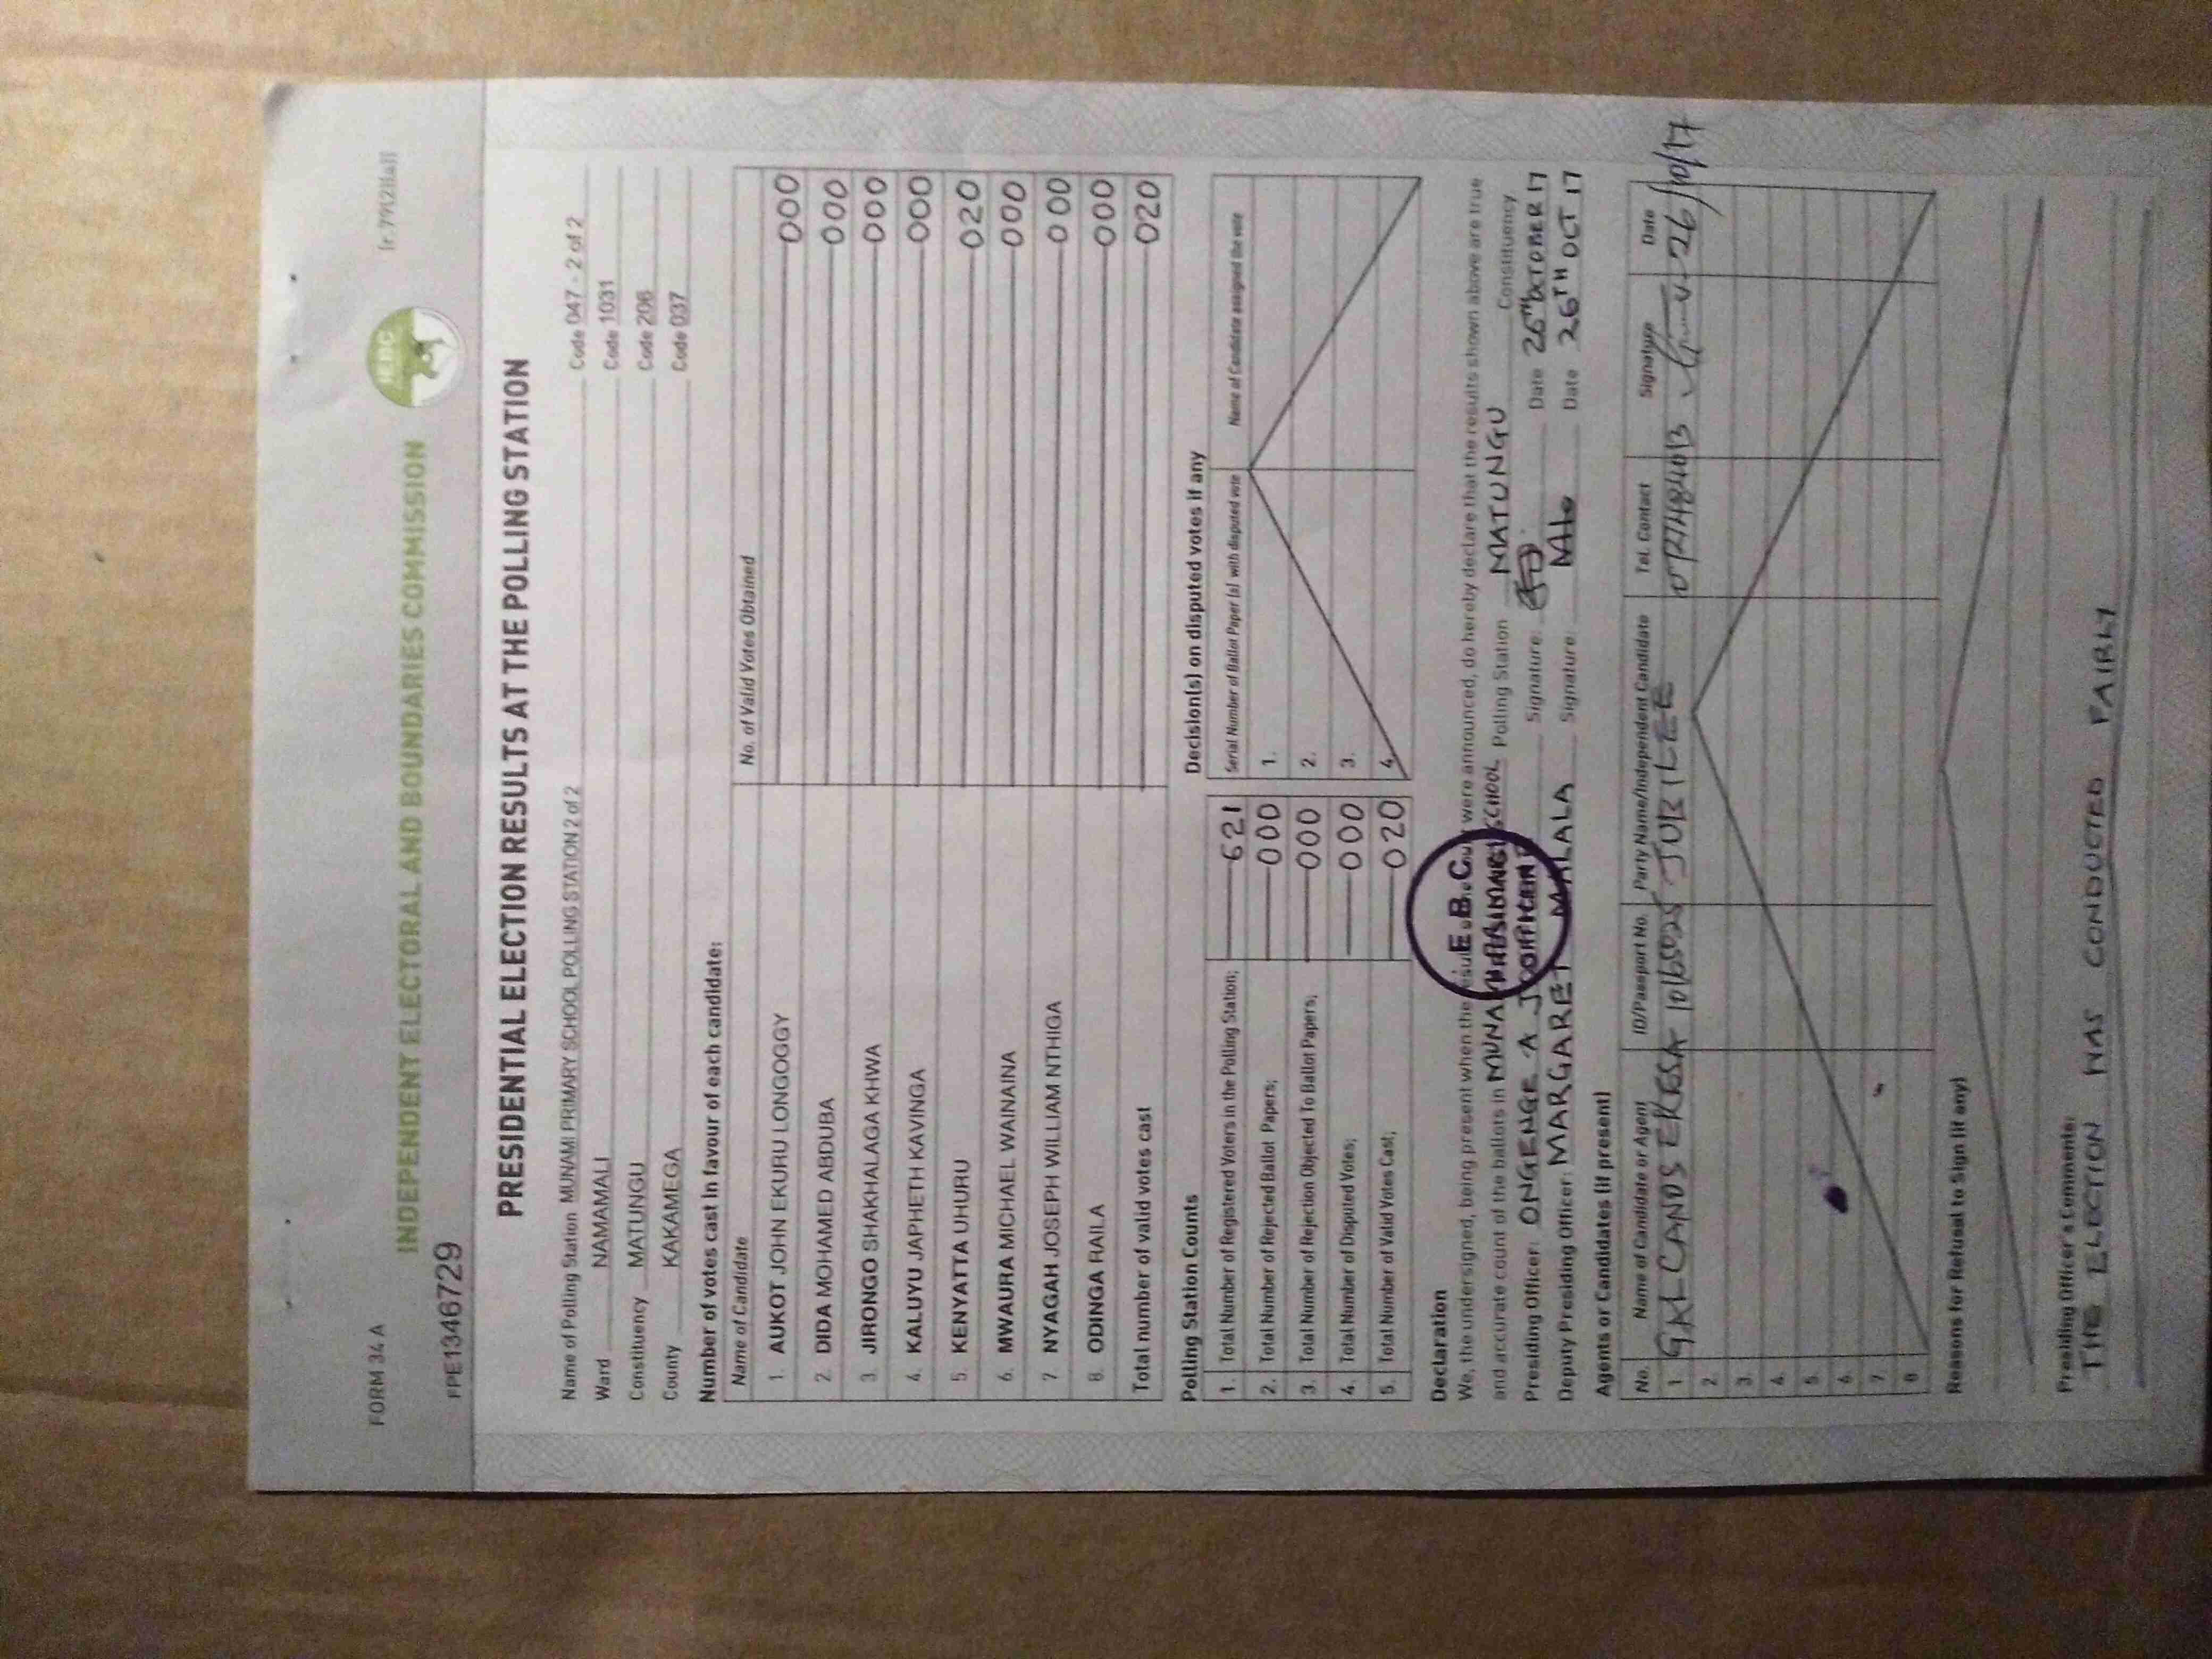 FORM 34 A
INDEPENDENT ELECTORAL AND BOUNDARIES COMMISSION
IEBC
FPE13467299
PRESIDENTIAL ELECTION RESULTS AT THE POLLING STATION
Name of Polling Station MUNAMI PRIMARY SCHOOL POLLING STATION 2 of 2 Code 047 - 2 of 2
Ward NAMAMALI Code 1031
Constituency MATUNGU Code 206
County KAKAMEGA Code 037
Number of votes cast in favour of each candidate:
Name of Candidate No. of Valid Votes Obtained
1. AUKOT JOHN EKURU LONGOGGY 000
2. DIDA MOHAMED ABDUBA 000
3. JIRONGO SHAKHALAGA KHWA 000
4. KALUYU JAPHETH KAVINGA 000
5. KENYATTA UHURU 020
6. MWAURA MICHAEL WAINAINA 000
7. NYAGAH JOSEPH WILLIAM NTHIGA 000
8. ODINGA RAILA 000
Total number of valid votes cast 020
Polling Station Counts
1. Total Number of Registered Voters in the Polling Station; 621
2. Total Number of Rejected Ballot Papers; 000
3. Total Number of Rejection Objected To Ballot Papers; 000
4. Total Number of Disputed Votes; 000
5. Total Number of Valid Votes Cast; 020
Decision(s) on disputed votes if any
Serial Number of Ballot Paper (s) with disputed vote Name of Candidate assigned the vote
1.
2.
3.
4.
Declaration
We, the undersigned, being present when the were announced, do hereby declare that the results shown above are true
and accurate count of the ballots in SCHOOL Polling Station MATUNGU Constituency
Presiding Officer: ONGENGE A J Signature: Date 26TH OCTOBER 17
Deputy Presiding Officer: MARGARET MALALA Signature: Date 26TH OCT 17
E.B.C
Agents or Candidates (if present)
No. Name of Candidate or Agent ID/Passport No. Party Name/Independent Candidate Tel. Contact Signature Date
1. JUBILEE 26/10/17
2.
3.
4.
5.
6.
7.
8
Reasons for Refusal to Sign (if any)
Presiding Officer's Comments:
THE ELECTION WAS CONDUCTED FAIRLY